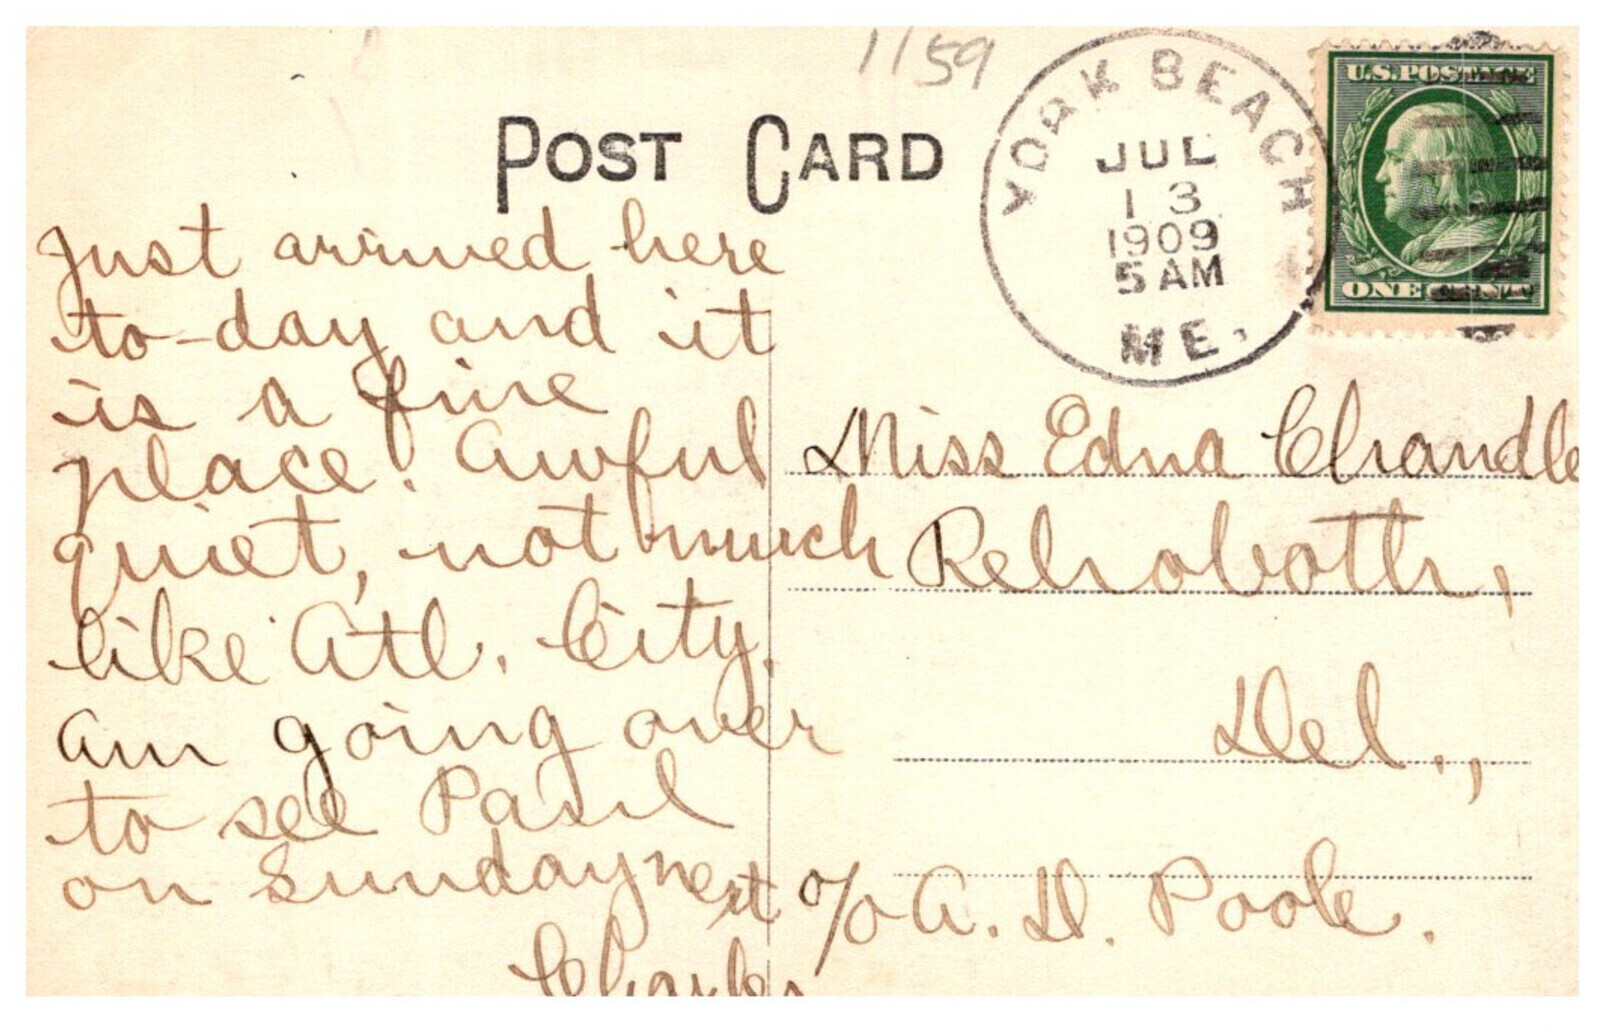 1159
POST CARD
YORK BEACH
JUL
13
1909
5 AM
ME.
U.S. POSTAGE
ONE CENT
Just arrived here
to-day and it
is a fine
place. Awful
quiet, not much
like Atl. City.
am going over
to see Paul
on Sunday next
Charles
Miss Edna Chandle
Rehoboth,
Del.,
c/o A. D. Poole.